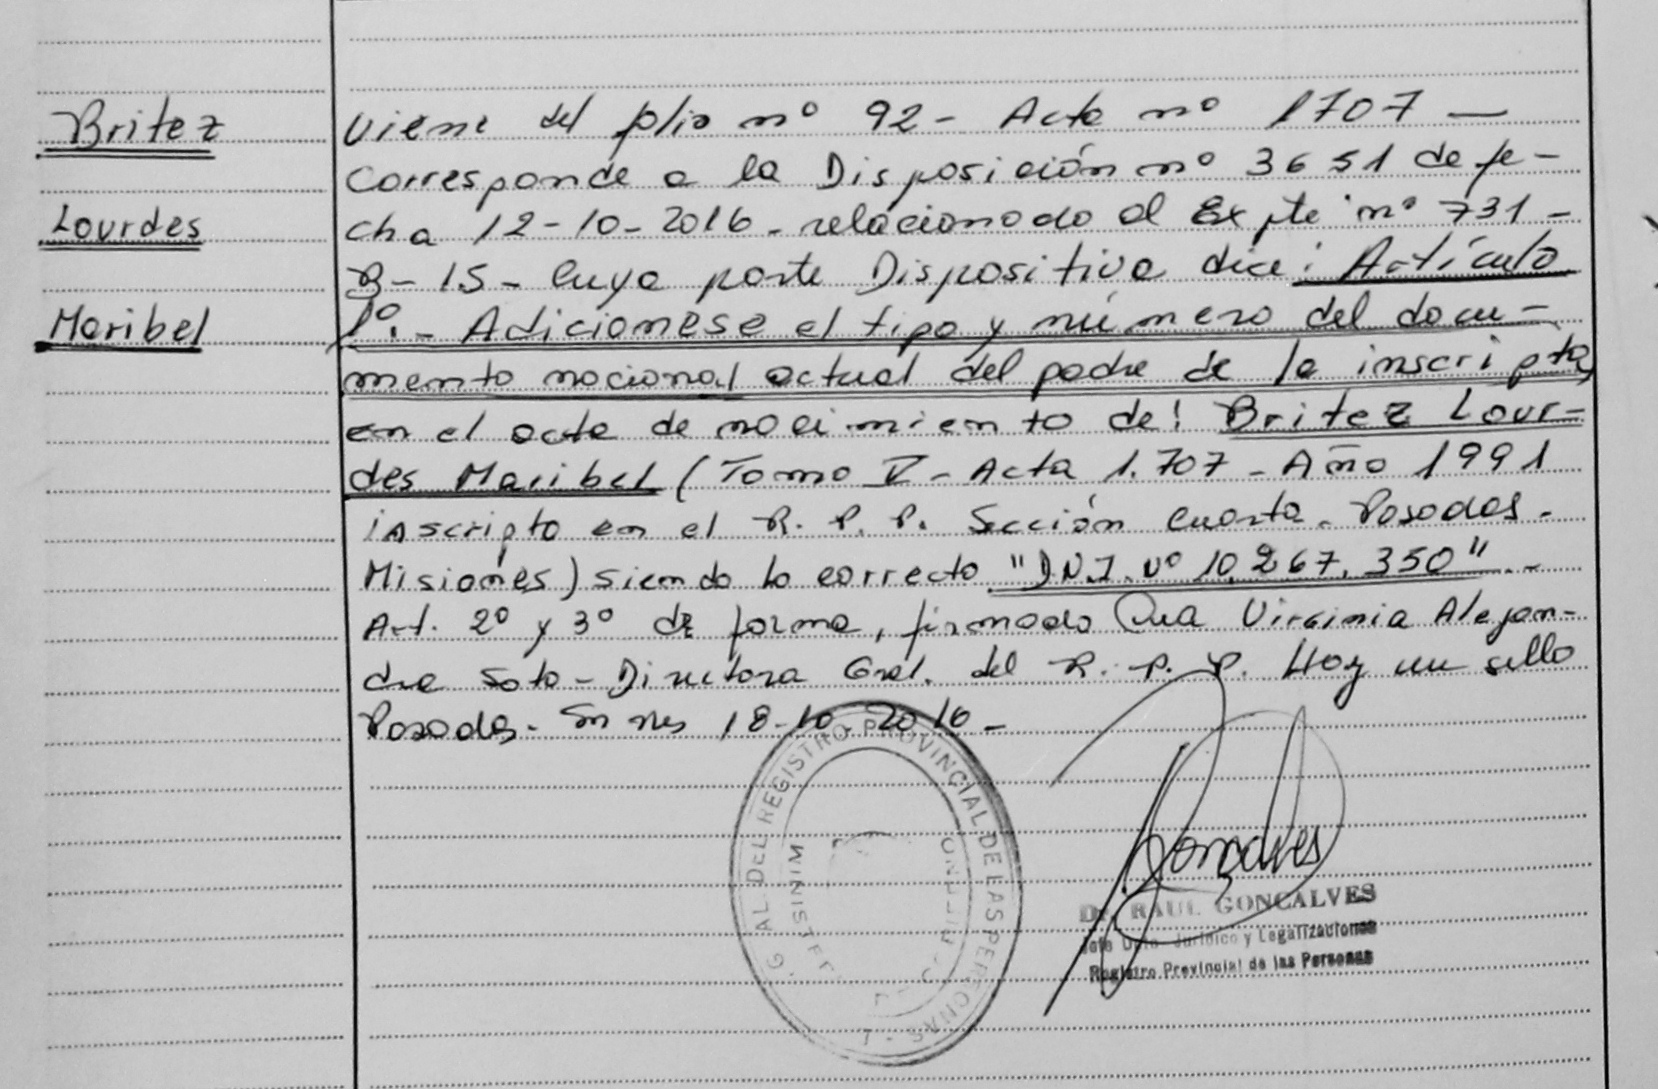 Britez
Lourdes
Maribel
Viene del folio nº 92 - Acta nº 1707 —
Corresponde a la Disposición nº 3651 de fe-
cha 12-10-2016 - relacionado al Expte nº 731 -
B - 15 - Cuya parte Dispositiva dice: Artículo
1º. - Adicionese el tipo y número del docu-
mento nacional actual del padre de la inscripta,
en el acta de nacimiento de: Britez Lour-
des Maribel (Tomo V - Acta 1.707 - Año 1991
inscripto en el R. P. P. Sección Cuarta - Posadas -
Misiones) siendo lo correcto "D.N.I. Nº 10.267.350" . -
Art. 2º y 3º de forma, firmado Dra Virginia Alejan-
dra Soto - Directora Gral. del R. P. P. Hay un sello
Posadas - 18-10-2016 -
AL DEL REGISTRO PROVINCIAL DE LAS PERSONAS
MINISTER
Gonçalves
Dr. RAUL GONCALVES
Jefe Dpto. Jurídico y Legalizaciones
Registro Provincial de las Personas